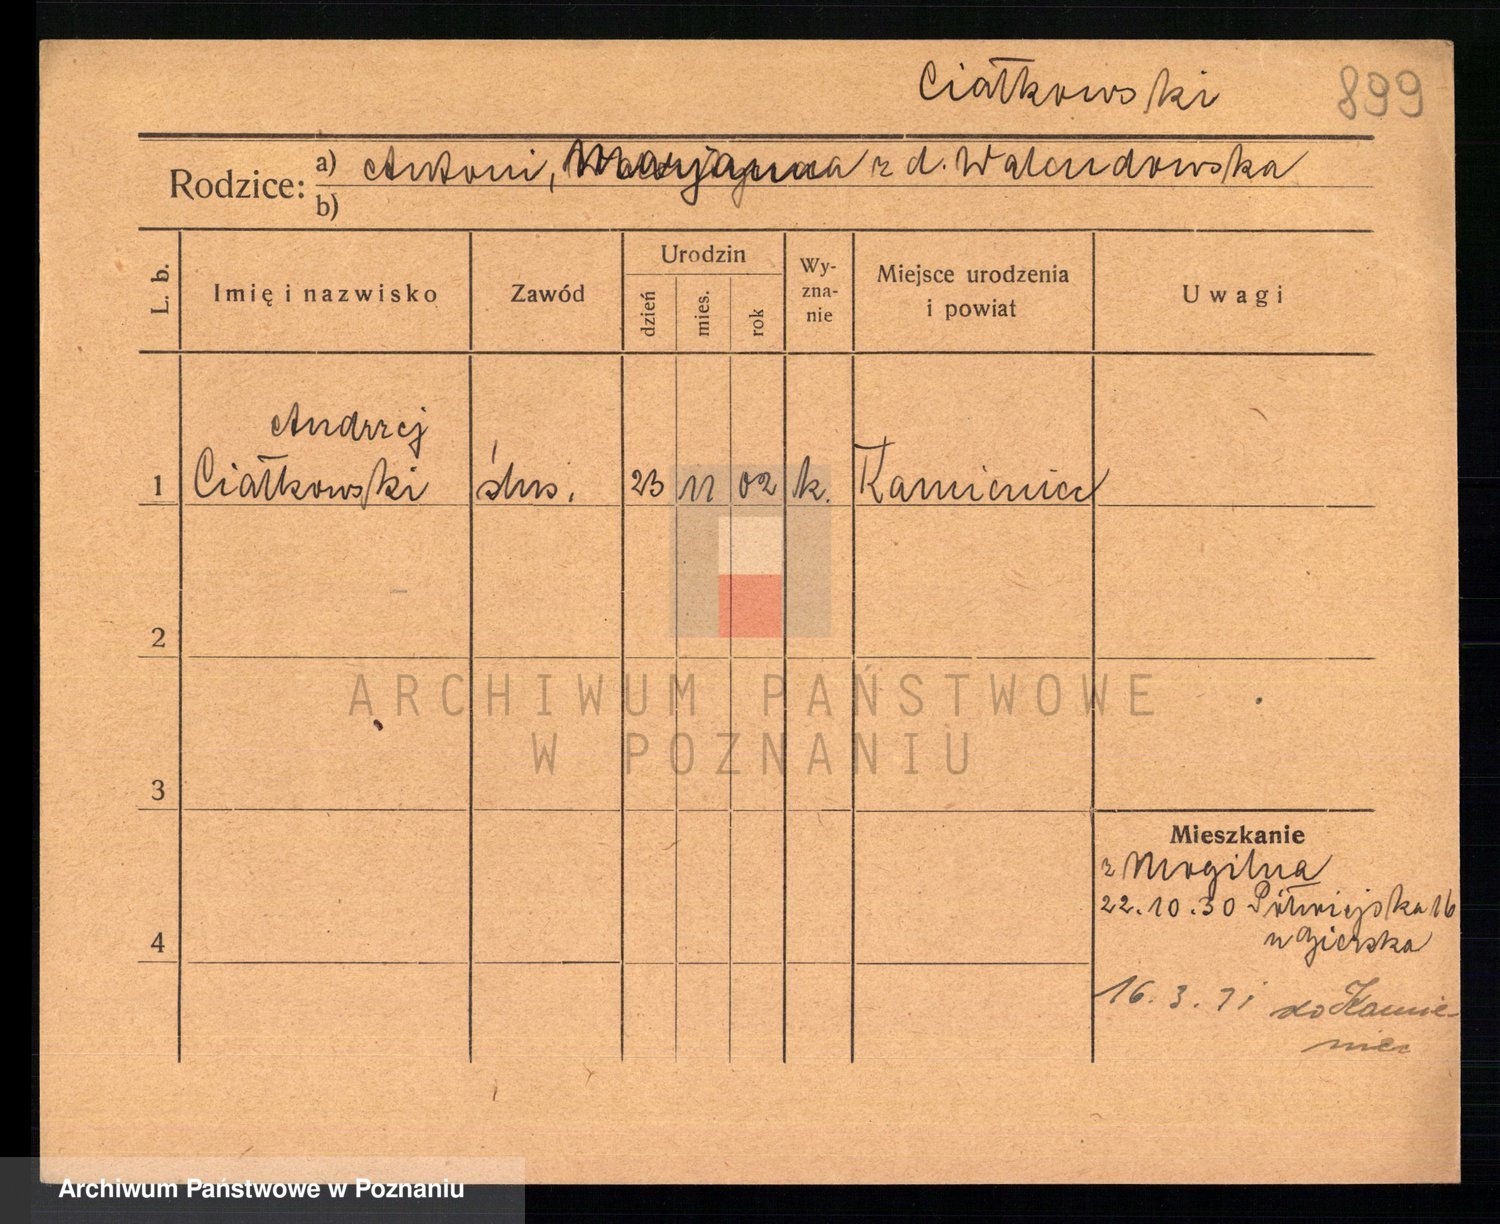 Ciałkowski 899
Rodzice: a) Antoni, Marjanna z d. Walendowska
b)
L. b.
Imię i nazwisko
Zawód
Urodzin
dzień
mies.
rok
Wy-
zna-
nie
Miejsce urodzenia
i powiat
Uwagi
Andrzej
1 Ciałkowski ślus. 23 11 02 k. Kamieniec
2
3
4
ARCHIWUM PAŃSTWOWE
W POZNANIU
Mieszkanie
z Mogilna
22.10.30 Półwiejska 16
u Gierska
16.3.31 do Kamie-
niec
Archiwum Państwowe w Poznaniu